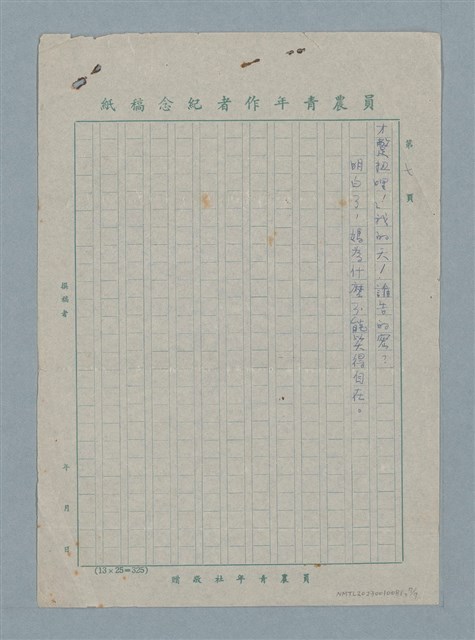 員農青年作者紀念稿紙
第七頁
才彆扭哩!我的天!誰告的密?
明白了,媽為什麼不能笑得自在。
撰稿者
年 月 日
(13×25=325)
員農青年社敬贈